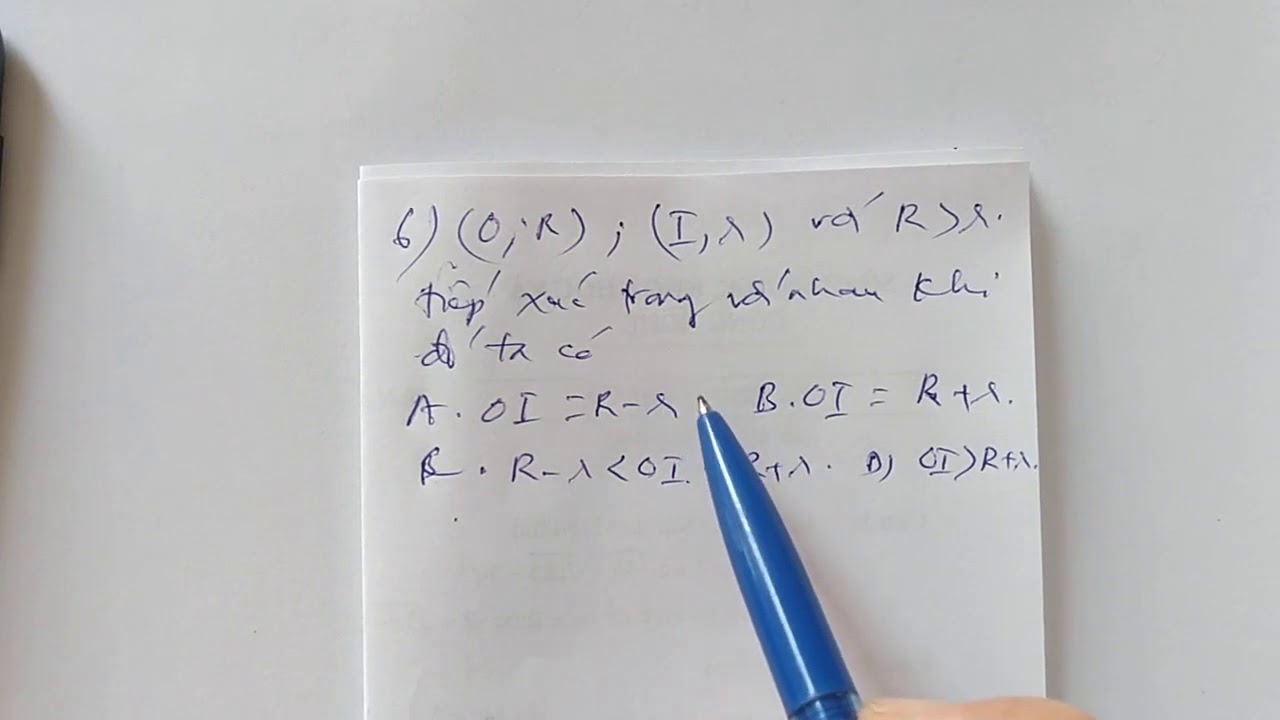 6) (O; R) ; (I, r) với R > r.
tiếp xúc trong với nhau khi
đó ta có
A. OI = R - r B. OI = R + r.
C. R - r < OI R + r. D) OI > R + r.